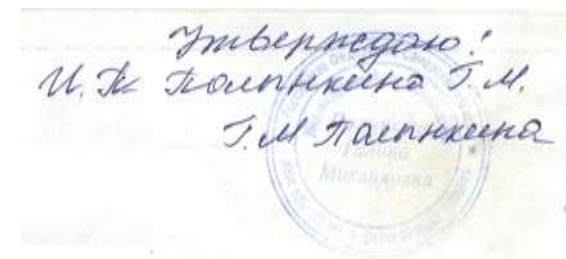 Утверждаю!
И.П. Палынкина Г.М.
Г.М Палынкина
Галина
Михайловна